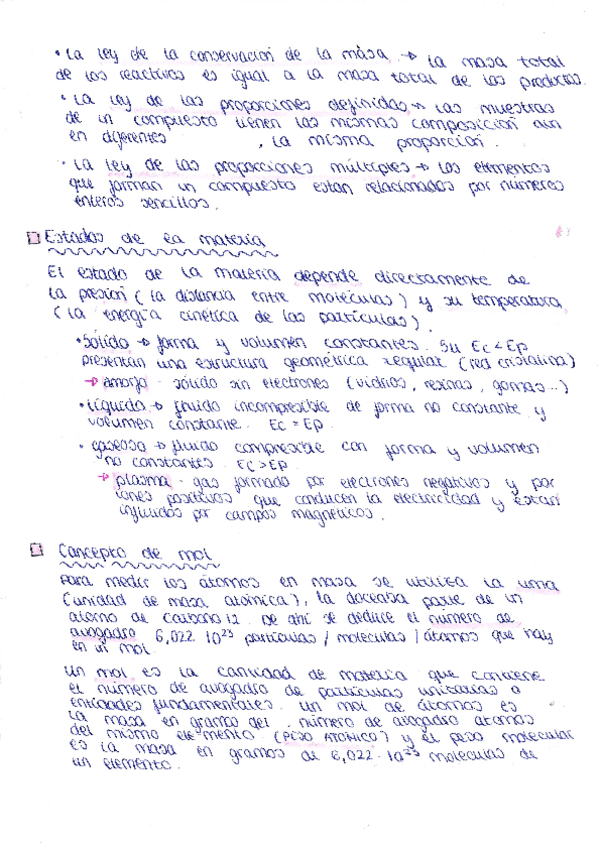 • La ley de la conservación de la mása → La masa total
de los reactivos es igual a la masa total de los productos.
• La ley de las proporciones definidas → Las muestras
de un compuesto tienen las mismas composición aun
en diferentes , la misma proporción.
• La ley de las proporciones múltiples → Los elementos
que forman un compuesto estan relacionados por números
enteros sencillos.
Estados de la materia
El estado de la materia depende directamente de
la presión (la distancia entre moléculas) y su temperatura
(la energía cinética de las partículas).
• Sólido → forma y volumen constantes. Su Ec < Ep
presentan una estructura geométrica regular (red cristalina)
→ amorfo - sólido sin electrones (vidrios, resinas, gomas...)
• Líquido → fluido incompresible de forma no constante y
volumen constante. Ec = Ep
• gaseoso → fluido compresible con forma y volumen
no constantes. Ec > Ep
→ plasma - gas formado por electrones negativos y por
iones positivos que conducen la electricidad y están
influidos por campos magnéticos.
Concepto de mol
Para medir los átomos en masa se utiliza la uma
(unidad de masa atómica), la doceava parte de un
átomo de carbono 12. De ahí se deduce el número de
avogadro 6,022 · 10²³ partículas / moleculas / átomos que hay
en un mol.
Un mol es la cantidad de materia que contiene
el número de avogadro de partículas unitarias o
entidades fundamentales. Un mol de átomos es
la masa en gramos del número de avogadro átomos
del mismo elemento (PESO ATÓMICO) y el peso molecular
es la masa en gramos de 6,022 · 10²³ moleculas de
un elemento.